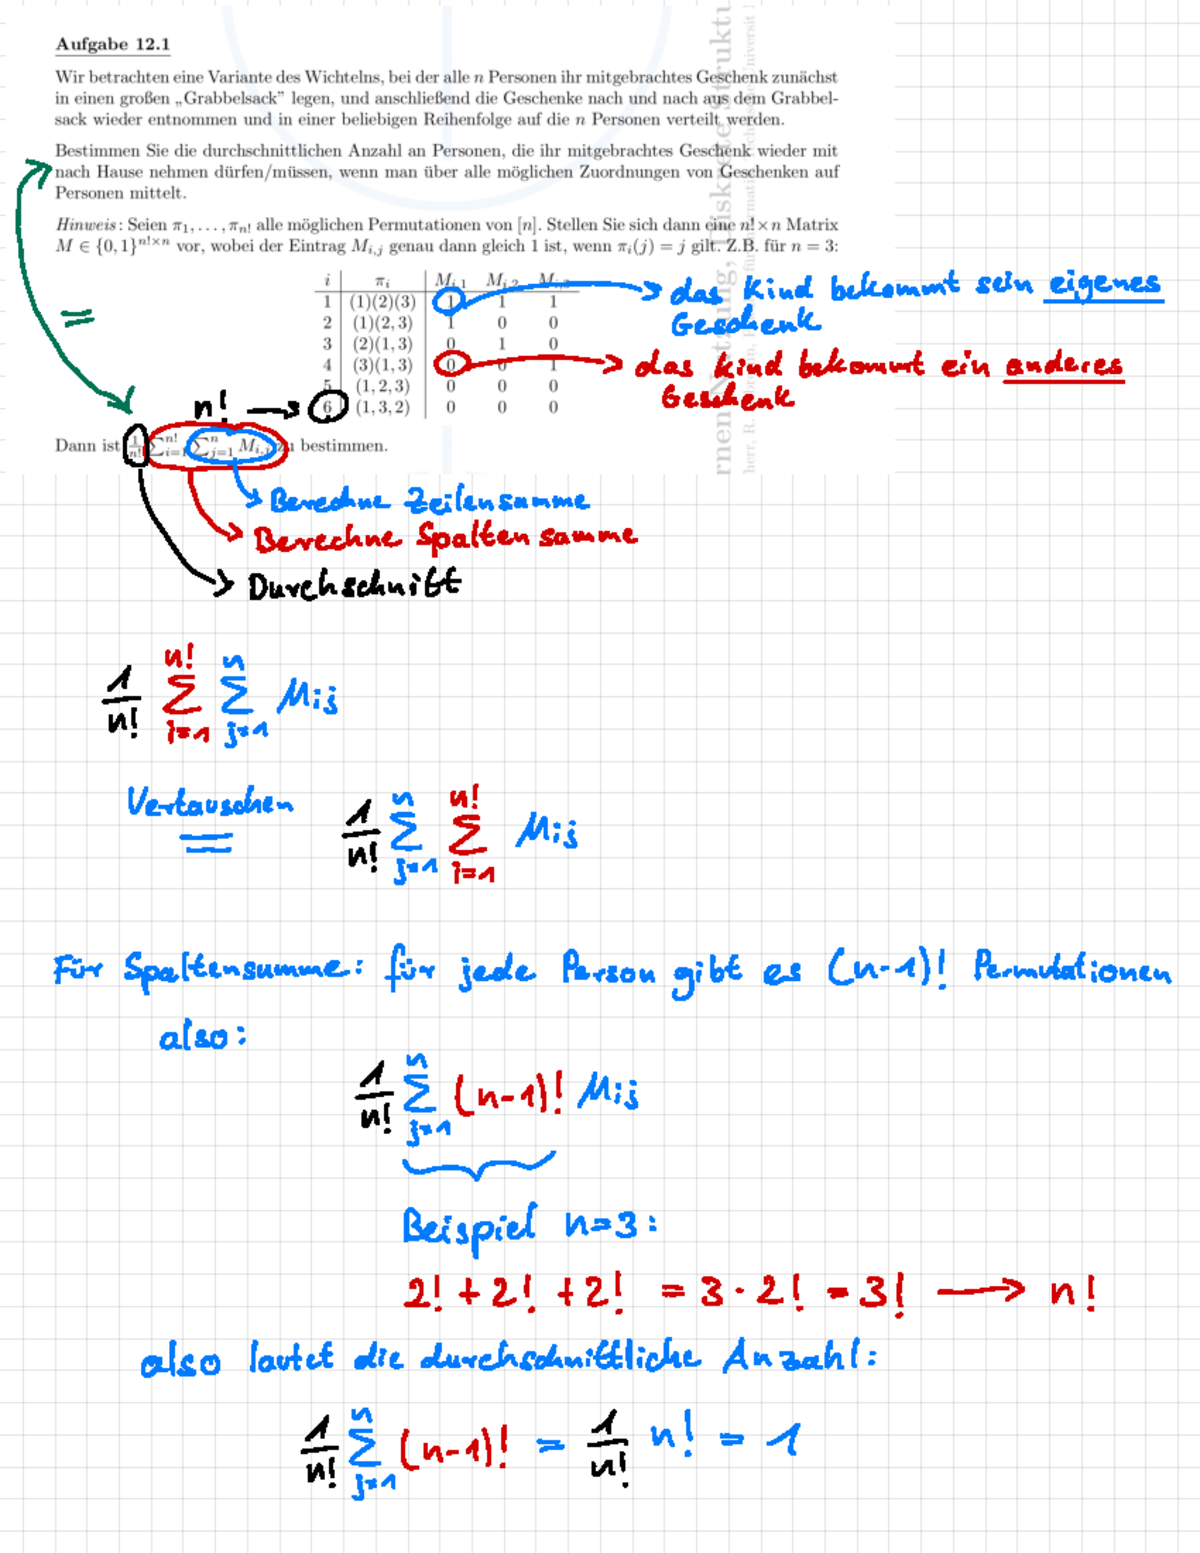 Aufgabe 12.1
Wir betrachten eine Variante des Wichtelns, bei der alle n Personen ihr mitgebrachtes Geschenk zunächst
in einen großen „Grabbelsack” legen, und anschließend die Geschenke nach und nach aus dem Grabbel-
sack wieder entnommen und in einer beliebigen Reihenfolge auf die n Personen verteilt werden.
Bestimmen Sie die durchschnittlichen Anzahl an Personen, die ihr mitgebrachtes Geschenk wieder mit
nach Hause nehmen dürfen/müssen, wenn man über alle möglichen Zuordnungen von Geschenken auf
Personen mittelt.
Hinweis: Seien π₁, . . . , πₙ! alle möglichen Permutationen von [n]. Stellen Sie sich dann eine n! × n Matrix
M ∈ {0, 1}^{n!×n} vor, wobei der Eintrag M_{i,j} genau dann gleich 1 ist, wenn π_i(j) = j gilt. Z.B. für n = 3:
i π_i M_{i,1} M_{i,2}
1 (1)(2)(3) 1 1 1
2 (1)(2, 3) 1 0 0
3 (2)(1, 3) 0 1 0
4 (3)(1, 3) 0 0 1
5 (1, 2, 3) 0 0 0
6 (1, 3, 2) 0 0 0
das Kind bekommt sein eigenes
Geschenk
das kind bekommt ein anderes
Geschenk
=
n! →
Dann ist 1/n! ∑_{i=1}^{n!} ∑_{j=1}^{n} M_{i,j} zu bestimmen.
Berechne Zeilensumme
Berechne Spalten samme
Durchschnitt
1/n! ∑_{i=1}^{n!} ∑_{j=1}^{n} Mij
Vertauschen
= 1/n! ∑_{j=1}^{n} ∑_{i=1}^{n!} Mij
Für Spaltensumme: für jede Person gibt es (n-1)! Permutationen
also:
1/n! ∑_{j=1}^{n} (n-1)! Mij
Beispiel n=3:
2! + 2! + 2! = 3 · 2! = 3! → n!
also lautet die durchschnittliche Anzahl:
1/n! ∑_{j=1}^{n} (n-1)! = 1/n! n! = 1